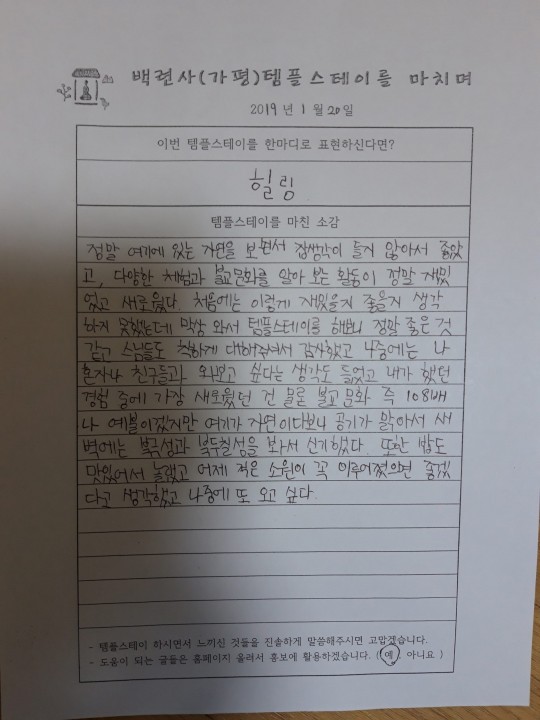 백련사(가평)템플스테이를 마치며
2019 년 1 월 20 일
이번 템플스테이를 한마디로 표현하신다면?
힐링
템플스테이를 마친 소감
정말 여기에 있는 자연을 보면서 잡생각이 들지 않아서 좋았
고, 다양한 체험과 불교문화를 알아 보는 활동이 정말 재밌
었고 새로웠다. 처음에는 이렇게 재밌을지 좋을지 생각
하지 못했는데 막상 와서 템플스테이를 해보니 정말 좋은 것
같고 스님들도 착하게 대해주셔서 감사했고 나중에는 나
혼자나 친구들과 와보고 싶다는 생각도 들었고 내가 했던
경험 중에 가장 새로웠던 건 물론 불교 문화 즉 108배
나 예불이겠지만 여기가 자연이다보니 공기가 맑아서 새
벽에는 북극성과 북두칠성을 봐서 신기했다. 또한 밥도
맛있어서 놀랬고 어제 적은 소원이 꼭 이루어졌으면 좋겠
다고 생각했고 나중에 또 오고 싶다.
- 템플스테이 하시면서 느끼신 것들을 진솔하게 말씀해주시면 고맙겠습니다.
- 도움이 되는 글들은 홈페이지 올려서 홍보에 활용하겠습니다. ( 예 , 아니요 )